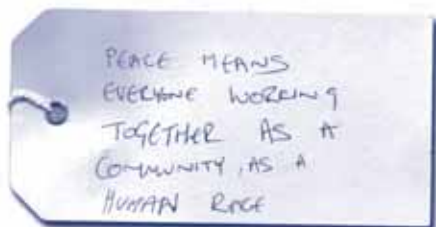 PEACE MEANS
EVERYONE WORKING
TOGETHER AS A
COMMUNITY, AS A
HUMAN RACE